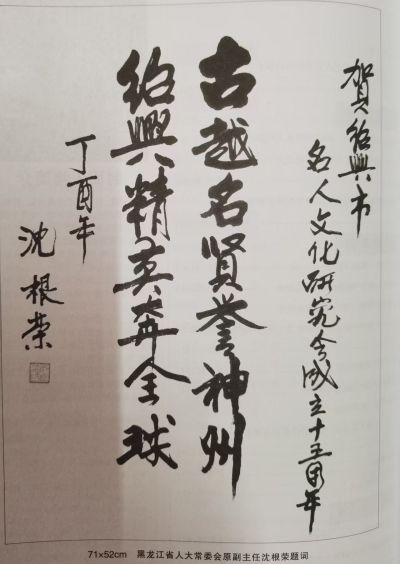 賀绍興市
名人文化研究会成立十五周年
古越名贤誉神州
绍興精英奔全球
丁酉年
沈根荣
71×52cm 黑龙江省人大常委会原副主任沈根荣题词